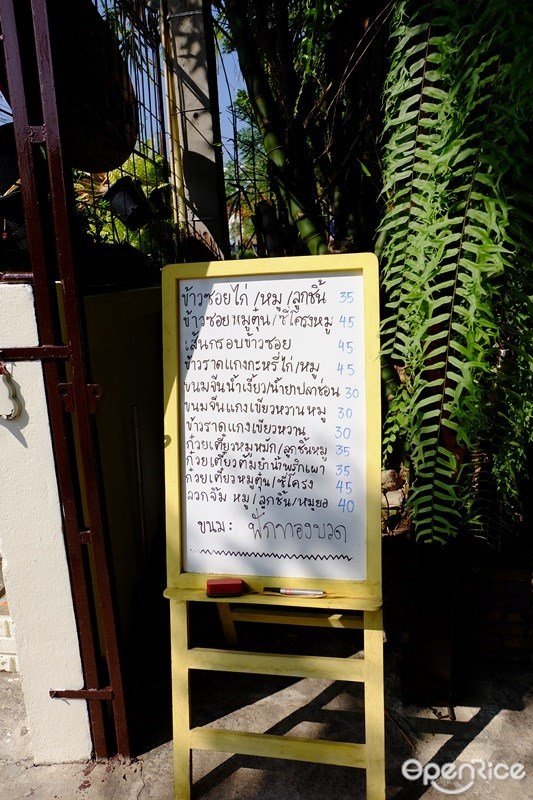 ข้าวซอยไก่/หมู/ลูกชิ้น 35
ข้าวซอยหมูตุ๋น/ซี่โครงหมู 45
เส้นกรอบข้าวซอย 45
ข้าวราดแกงกะหรี่ไก่/หมู 45
ขนมจีนน้ำเงี้ยว/น้ำยาปลาช่อน 30
ขนมจีนแกงเขียวหวานหมู 30
ข้าวราดแกงเขียวหวาน 30
ก๋วยเตี๋ยวหมูหมัก/ลูกชิ้นหมู 35
ก๋วยเตี๋ยวต้มยำน้ำพริกเผา 35
ก๋วยเตี๋ยวหมูตุ๋น/ซี่โครง 45
ลวกจิ้ม หมู/ลูกชิ้น/หมูยอ 40
ขนม: ฟักทองบวด
OpenRice